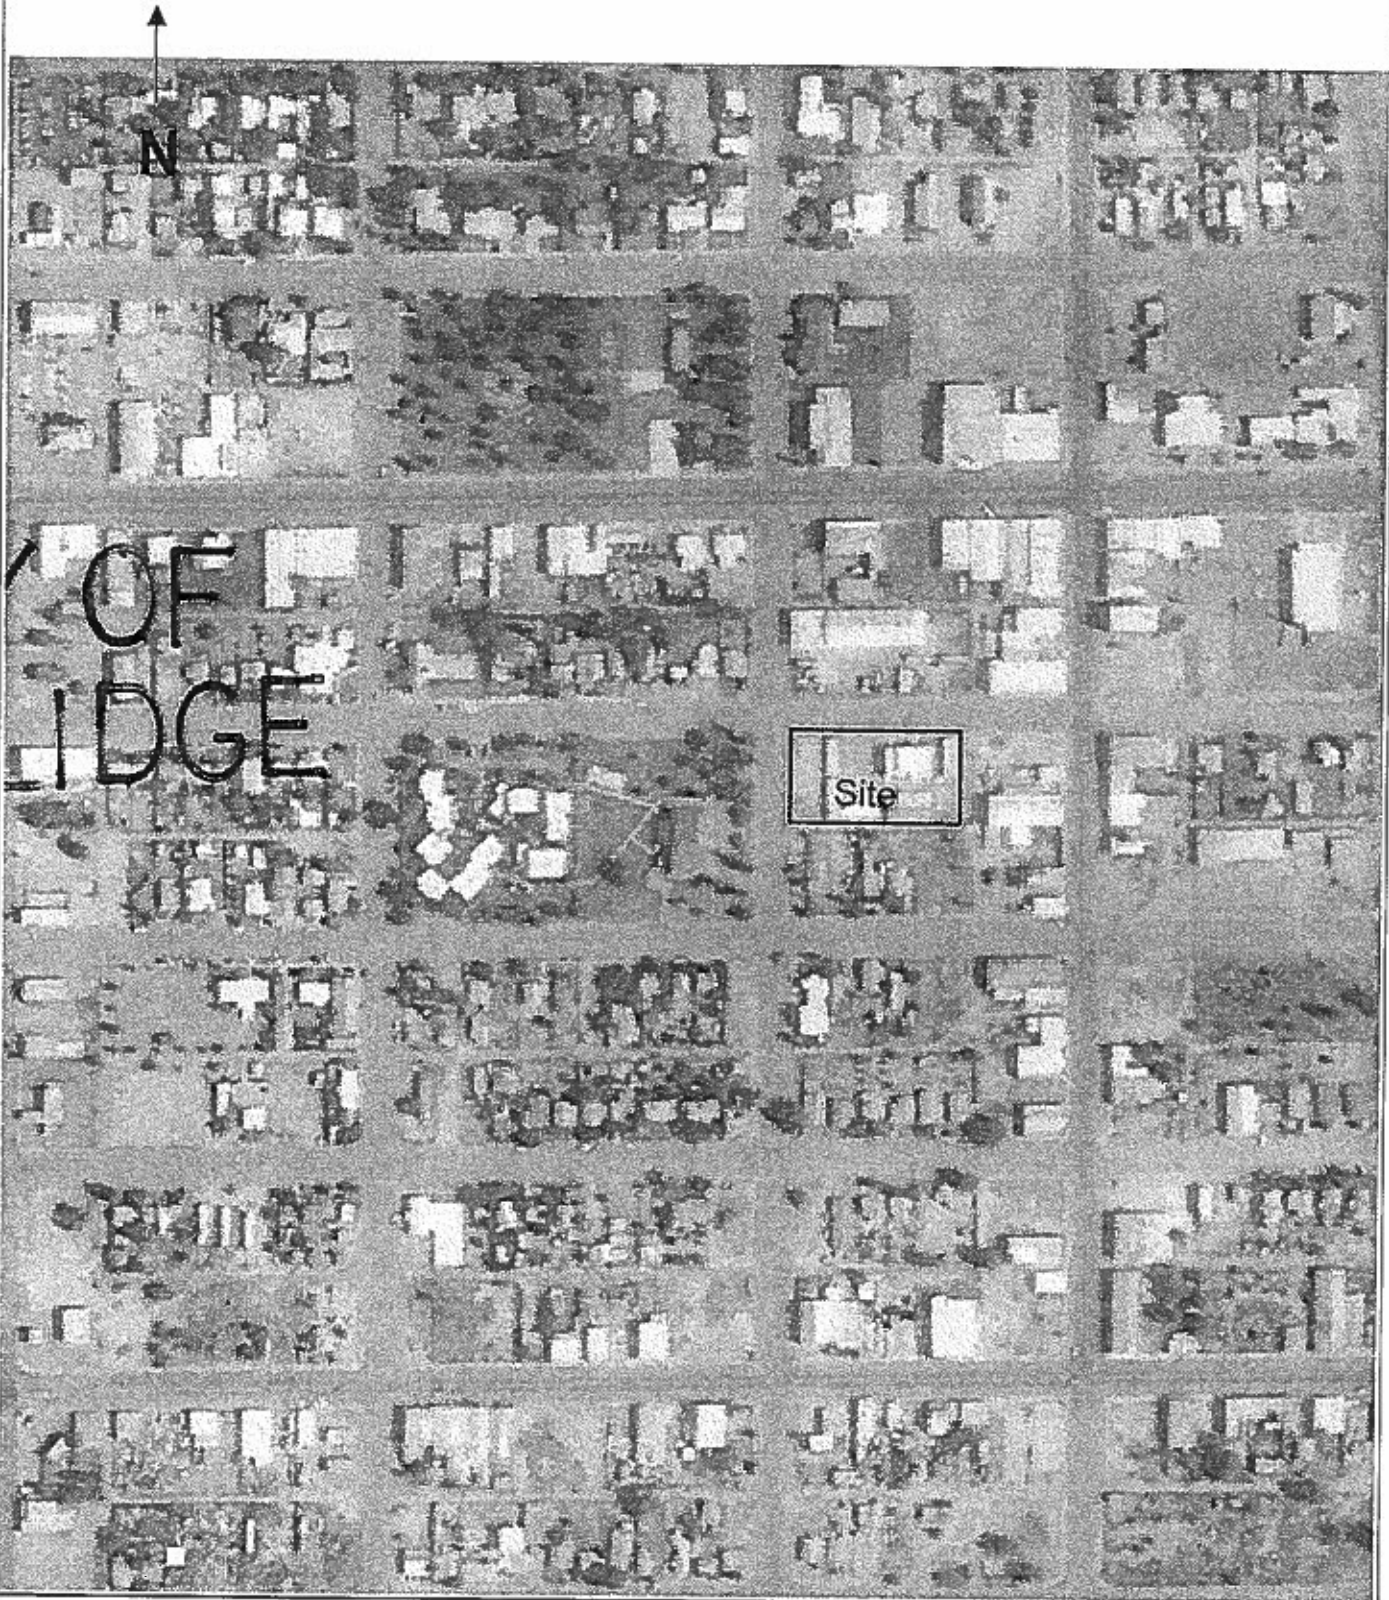 N
Y OF
LIDGE
Site